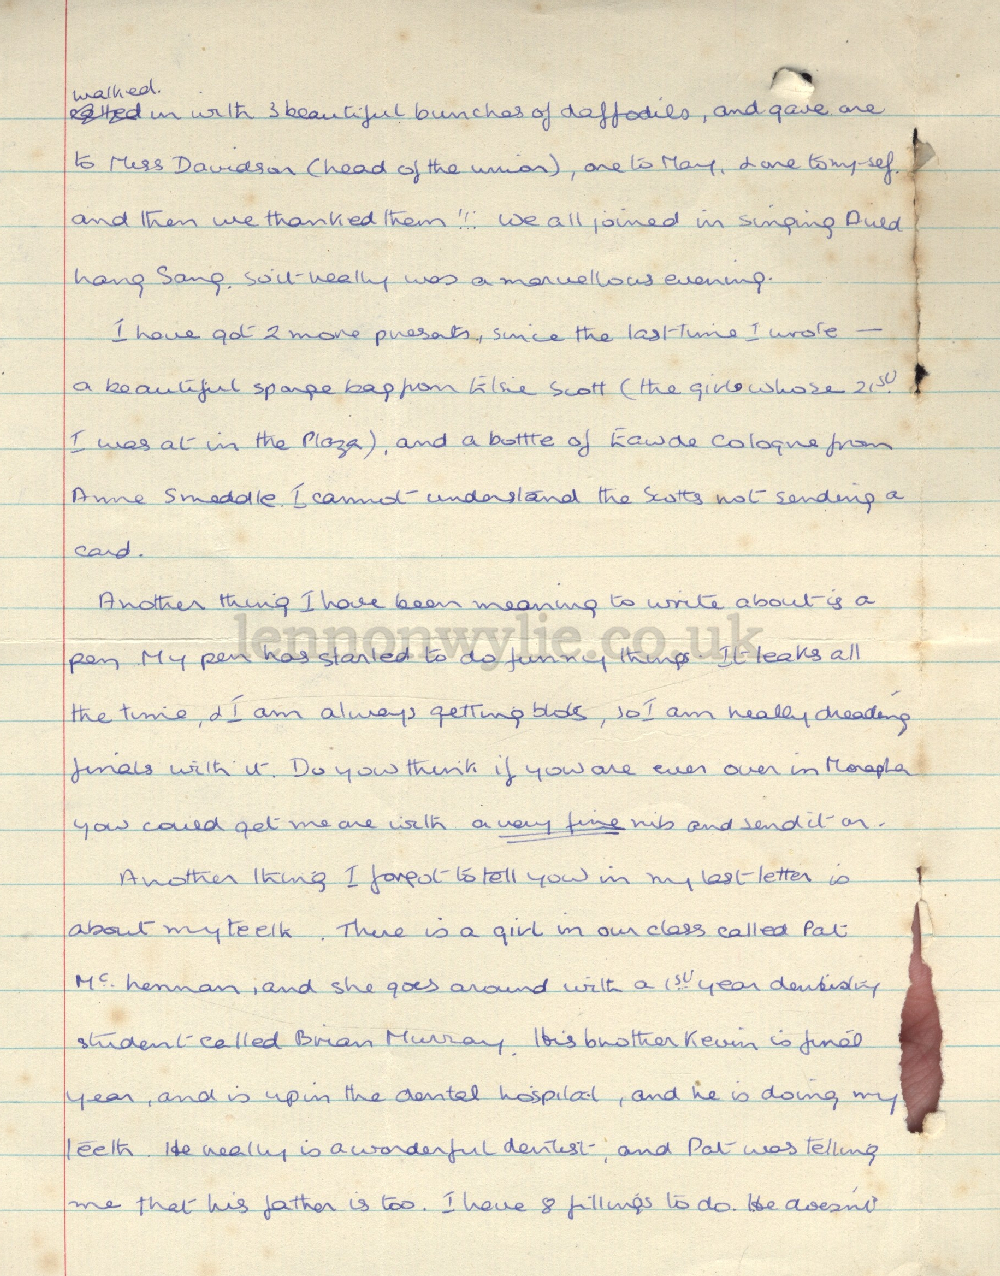 walked.
in with 3 beautiful bunches of daffodils, and gave one
to Miss Davidson (head of the union), one to May, & one to my-sef.
and then we thanked them !!! We all joined in singing Auld
Lang Sang. so it really was a marvellous evening.
I have got 2 more presents, since the last time I wrote —
a beautiful sponge bag from Elsie Scott (the girl whose 21st
I was at in the Plaza), and a bottle of Eau de Cologne from
Anne Smeddle. I cannot understand the Scotts not sending a
card.
Another thing I have been meaning to write about is a
lennonwylie.co.uk
pen. My pen has started to do funny things. It leaks all
the time, & I am always getting blots, so I am really dreading
finals with it. Do you think if you are ever over in
you could get me one with a very fine nib and send it on.
Another thing I forgot to tell you in my last letter is
about my teeth. There is a girl in our class called Pat
Mc. Lennan, and she goes around with a 1st year dentistry
student called Brian Murray. His brother Kevin is final
year, and is up in the dental hospital, and he is doing my
teeth. He really is a wonderful dentist, and Pat was telling
me that his father is too. I have 8 fillings to do. He doesn't